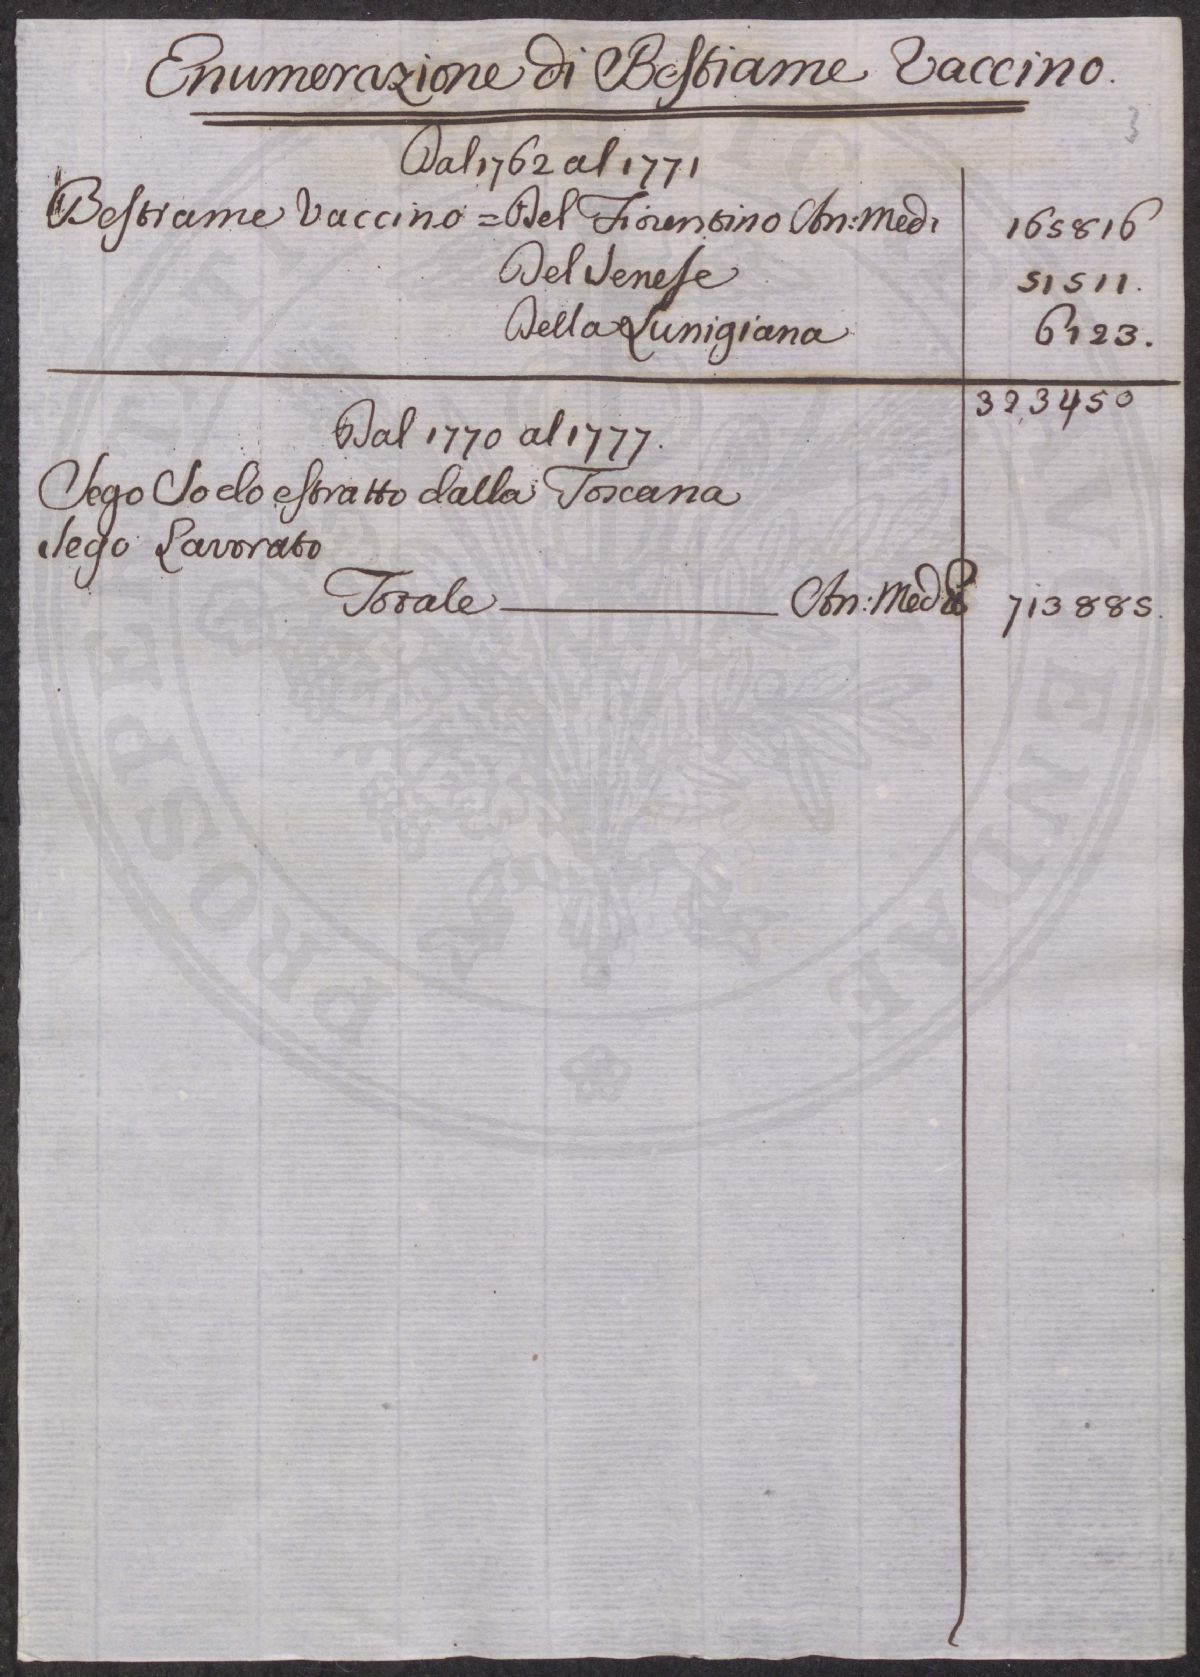 Enumerazione di Bestiame Vaccino.
3
Dal 1762 al 1771
Bestiame Vaccino = Del Fiorentino An: Medi 165816
Del Senese 51511.
Della Lunigiana 6123.
323450
Dal 1770 al 1777.
Sego Sodo estratto dalla Toscana
Sego Lavorato
Totale An: Med: 713885.
PUBLICAE
PROSPERITATI
AUGENDAE